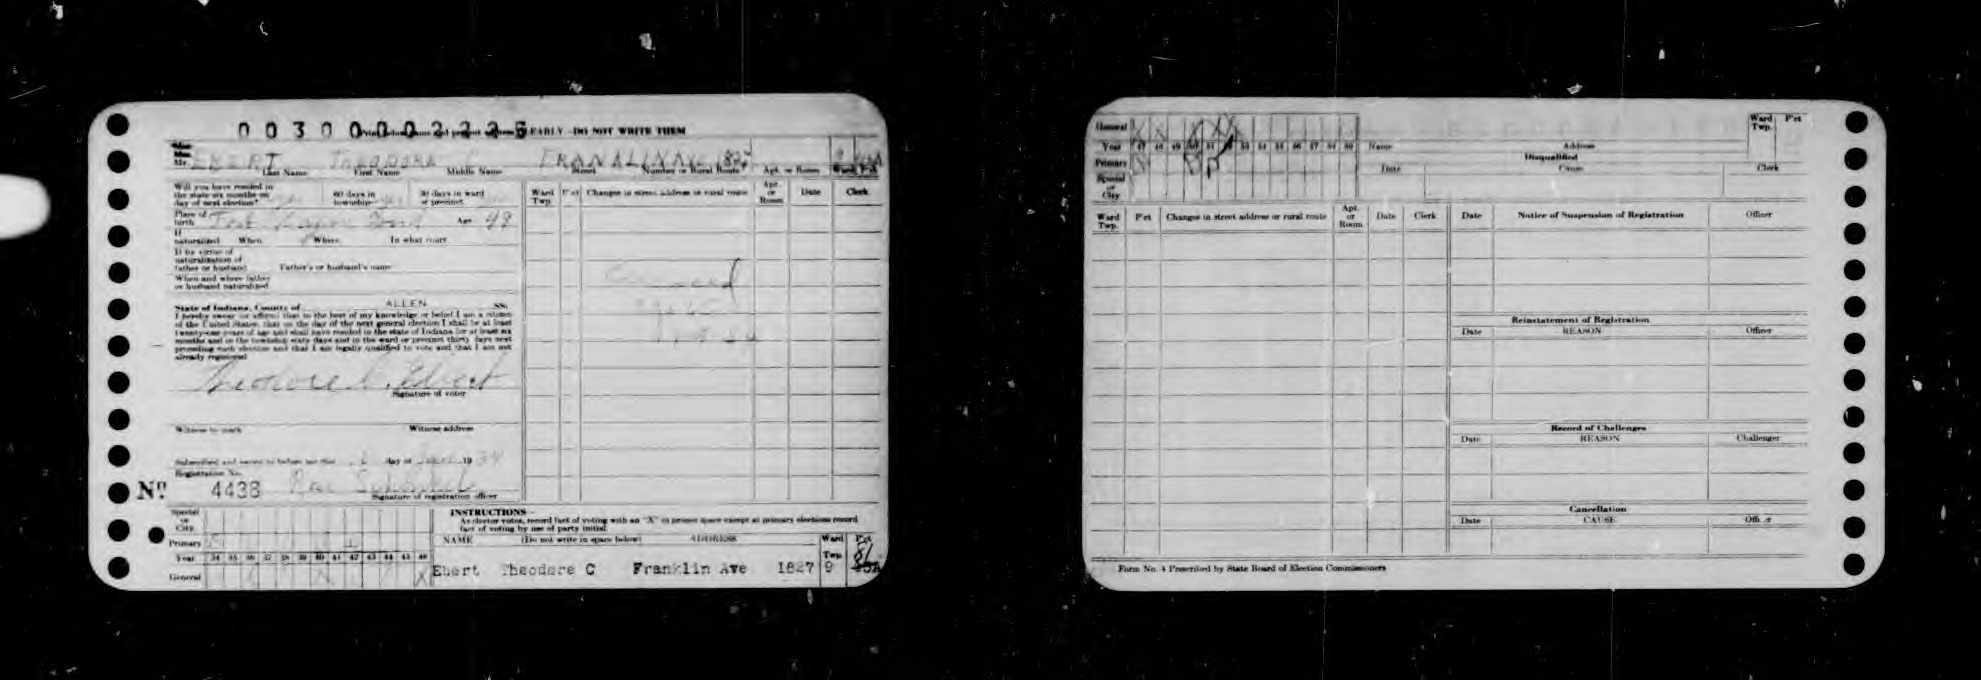 00300002225
EARLY - DO NOT WRITE THEM
Mr. EBERT THEODORE C FRANKLIN AVE 1827 9
Last Name First Name Middle Name Street Number or Rural Route Apt. or Room Ward Pct
Will you have resided in
the state six months on
day of next election? yes 60 days in
township yes 30 days in ward
or precinct
Place of
birth Age 48
If
naturalized When Where In what court
If by virtue of
naturalization of
father or husband Father's or husband's name
When and where father
or husband naturalized
State of Indiana, County of ALLEN SS:
I hereby swear (or affirm) that to the best of my knowledge or belief I am a citizen
of the United States, that on the day of the next general election I shall be at least
twenty-one years of age and shall have resided in the state of Indiana for at least six
months and in the township sixty days and in the ward or precinct thirty days next
preceding such election and that I am legally qualified to vote and that I am not
already registered
Theodore C. Ebert
Signature of voter
Witness to mark Witness address
Subscribed and sworn to before me this day of 1934
Registration No.
No. 4438
Signature of registration officer
Ward
Twp. P'ct Changes in street address or rural route Apt.
or
Room Date Clerk
Special
or
City
Primary
Year 34 35 36 37 38 39 40 41 42 43 44 45 46
General X X
INSTRUCTIONS—
As elector votes, record fact of voting with an "X" in proper space except at primary elections record
fact of voting by use of party initial.
NAME (Do not write in space below) ADDRESS Ward
Twp. Pct
81
Ebert Theodore C Franklin Ave 1827 9
General X X
Year 47 48 49 50 51 52 53 54 55 56 57 58 59
Primary
Special
or
City
Name Address Ward
Twp. P'ct
Disqualified
Date Cause Clerk
Ward
Twp. P'ct Changes in street address or rural route Apt.
or
Room Date Clerk
Date Notice of Suspension of Registration Officer
Reinstatement of Registration
Date REASON Officer
Record of Challenges
Date REASON Challenger
Cancellation
Date CAUSE Officer
Form No. 4 Prescribed by State Board of Election Commissioners